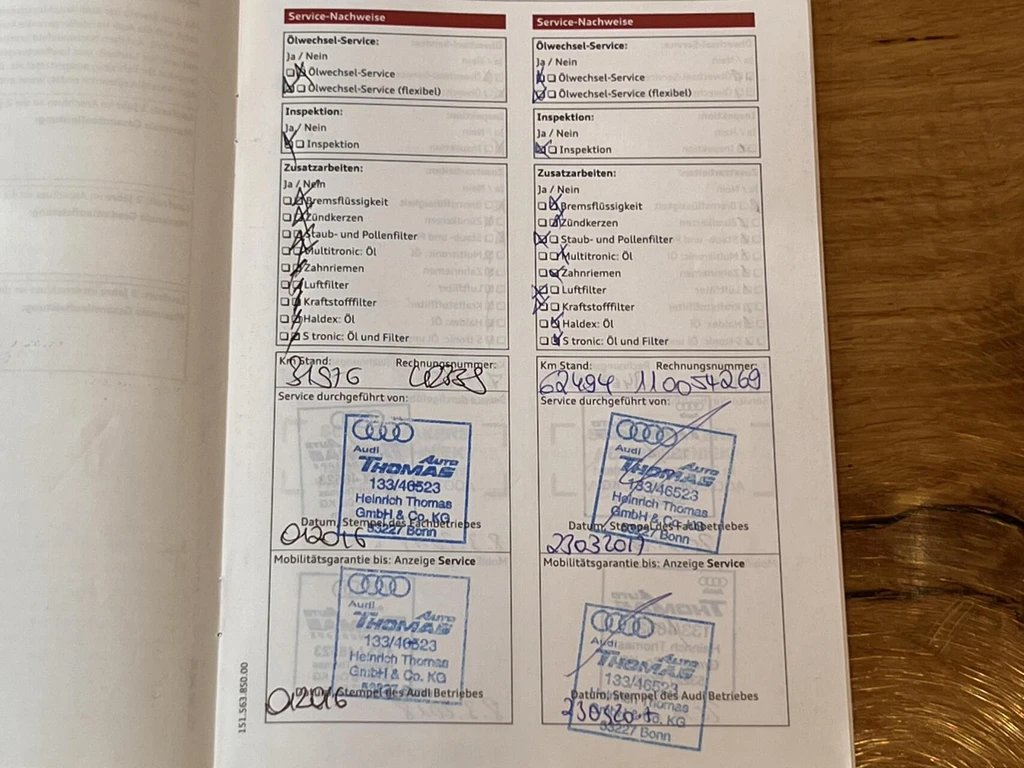 Service-Nachweise
Ölwechsel-Service:
Ja / Nein
Ölwechsel-Service
Ölwechsel-Service (flexibel)
Inspektion:
Ja / Nein
Inspektion
Zusatzarbeiten:
Ja / Nein
Bremsflüssigkeit
Zündkerzen
Staub- und Pollenfilter
Multitronic: Öl
Zahnriemen
Luftfilter
Kraftstofffilter
Haldex: Öl
S tronic: Öl und Filter
Km Stand: Rechnungsnummer:
31576
Service durchgeführt von:
Audi
Auto
THOMAS
133/46523
Heinrich Thomas
GmbH & Co. KG
53227 Bonn
Datum, Stempel des Fachbetriebes
Mobilitätsgarantie bis: Anzeige Service
Audi
Auto
THOMAS
133/46523
Heinrich Thomas
GmbH & Co. KG
Datum, Stempel des Audi Betriebes
151.563.850.00
Service-Nachweise
Ölwechsel-Service:
Ja / Nein
Ölwechsel-Service
Ölwechsel-Service (flexibel)
Inspektion:
Ja / Nein
Inspektion
Zusatzarbeiten:
Ja / Nein
Bremsflüssigkeit
Zündkerzen
Staub- und Pollenfilter
Multitronic: Öl
Zahnriemen
Luftfilter
Kraftstofffilter
Haldex: Öl
S tronic: Öl und Filter
Km Stand: Rechnungsnummer:
62494 110054269
Service durchgeführt von:
Audi
Auto
THOMAS
133/46523
Heinrich Thomas
GmbH & Co. KG
53227 Bonn
Datum, Stempel des Fachbetriebes
23032017
Mobilitätsgarantie bis: Anzeige Service
Audi
Auto
THOMAS
133/46523
Heinrich Thomas
GmbH & Co. KG
53227 Bonn
Datum, Stempel des Audi Betriebes